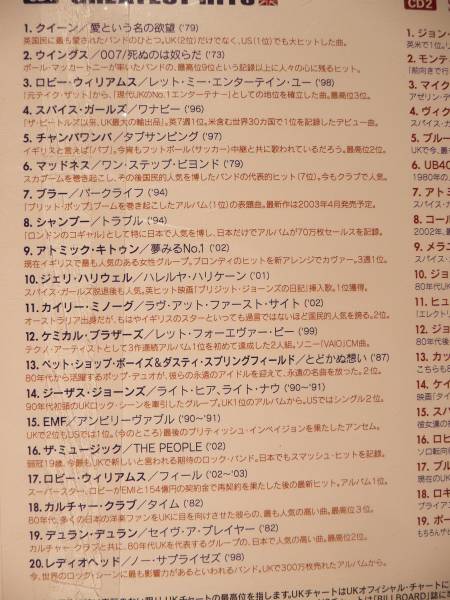 GREATEST HITS
1. クイーン／愛という名の欲望('79)
英国民に最も愛されたバンドのひとつ。UK(2位)だけでなく、US(1位)でも大ヒットした曲。
2. ウイングス／007/死ぬのは奴らだ('73)
ポール・マッカートニーが率いたバンドの、最高位9位という記録以上に人々の心に残るヒット。
3. ロビー・ウィリアムス／レット・ミー・エンターテイン・ユー('98)
「元テイク・ザット」から、「現代UKのNo.1エンターテナー」としての地位を確立した曲。最高位3位。
4. スパイス・ガールズ／ワナビー('96)
「ザ・ビートルズ以来、UK最大の輸出品」。英7週1位。米含む世界30カ国で1位を記録したデビュー曲。
5. チャンバワンバ／タブサンピング('97)
イギリスと言えば「パブ」。今宵もフットボール(サッカー)中継と共に歌われているだろう。最高位2位。
6. マッドネス／ワン・ステップ・ビヨンド('79)
スカブームを巻き起こし、その後国民的人気を博したバンドの代表的ヒット(7位)。今もクラブで人気。
7. ブラー／パークライフ('94)
「ブリット・ポップ」ブームを巻き起こしたアルバム(1位)の表題曲。最新作は2003年4月発売予定。
8. シャンプー／トラブル('94)
「ロンドンのコギャル」として特に日本で人気を博し、日本だけでアルバムが70万枚セールスを記録。
9. アトミック・キトゥン／夢みるNo.1('02)
現在イギリスで最も人気のある女性グループ。ブロンディのヒットを新アレンジでカヴァー。3週1位。
10. ジェリ・ハリウェル／ハレルヤ・ハリケーン('01)
スパイス・ガールズ脱退後も人気。英ヒット映画「ブリジット・ジョーンズの日記」挿入歌。1位獲得。
11. カイリー・ミノーグ／ラヴ・アット・ファースト・サイト('02)
オーストラリア出身だが、もはやイギリスのスターといっても過言ではないほど国民的人気を誇る。2位。
12. ケミカル・ブラザーズ／レット・フォーエヴァー・ビー('99)
テクノ・アーティストとして3作連続アルバム1位を初めて達成した2人組。ソニー「VAIO」CM曲。
13. ペット・ショップ・ボーイズ&ダスティ・スプリングフィールド／とどかぬ想い('87)
80年代から活躍するポップ・デュオが、彼らの永遠のアイドルを迎えて、永遠の名曲を放った。2位。
14. ジーザス・ジョーンズ／ライト・ヒア、ライト・ナウ('90〜'91)
90年代初頭のUKロック・シーンを牽引したグループ。UK1位のアルバムから。USではシングル2位。
15. EMF／アンビリーヴァブル('90〜'91)
UKで2位もUSでは1位。(今のところ)最後のブリティッシュ・インベイジョンを果たしたアンセム。
16. ザ・ミュージック／THE PEOPLE('02)
弱冠19歳、今最もUKで新しいと言われる期待のロック・バンド。日本でもスマッシュ・ヒットを記録。
17. ロビー・ウィリアムス／フィール('02〜'03)
スーパースター、ロビーがEMIと154億円の契約金で再契約を果たした後の最新ヒット。アルバム1位。
18. カルチャー・クラブ／タイム('82)
80年代、多くの日本の洋楽ファンをUKに目を向けさせた彼らの、最も人気の高い曲。最高位3位。
19. デュラン・デュラン／セイヴ・ア・プレイヤー('82)
カルチャー・クラブと共に、80年代UKを代表するグループの、日本で人気の高い曲。最高位2位。
20. レディオヘッド／ノー・サプライゼズ('98)
今、世界のロック・シーンに最も影響力があるといわれるバンド。UKで300万枚売れたアルバムから。
UKチャートの最高位を指します。UKチャートはUKオフィシャル・チャートに
CD2
1. ジョン・
英米で1位。
2. モンテ
「前向きで行
3. マイク
アゼリン・デ
4. ヴィク
スパイス・
5. ブルー
UKで今、最
6. UB40
1980年の、
7. アトミ
8. コール
2002年、最
9. メラニ
10. ジョ
80年代UK
11. ヒュ
「エレクトリ
12. ジョ
80年代
13. カッ
こちらも8
14. ケイ
映画「タイ
15. スパ
彼女達の
16. ロビ
ソロ転向後
17. ブル
現在のUK
18. ロキ
プライマル
19. ポー
もちろんザ・ビ